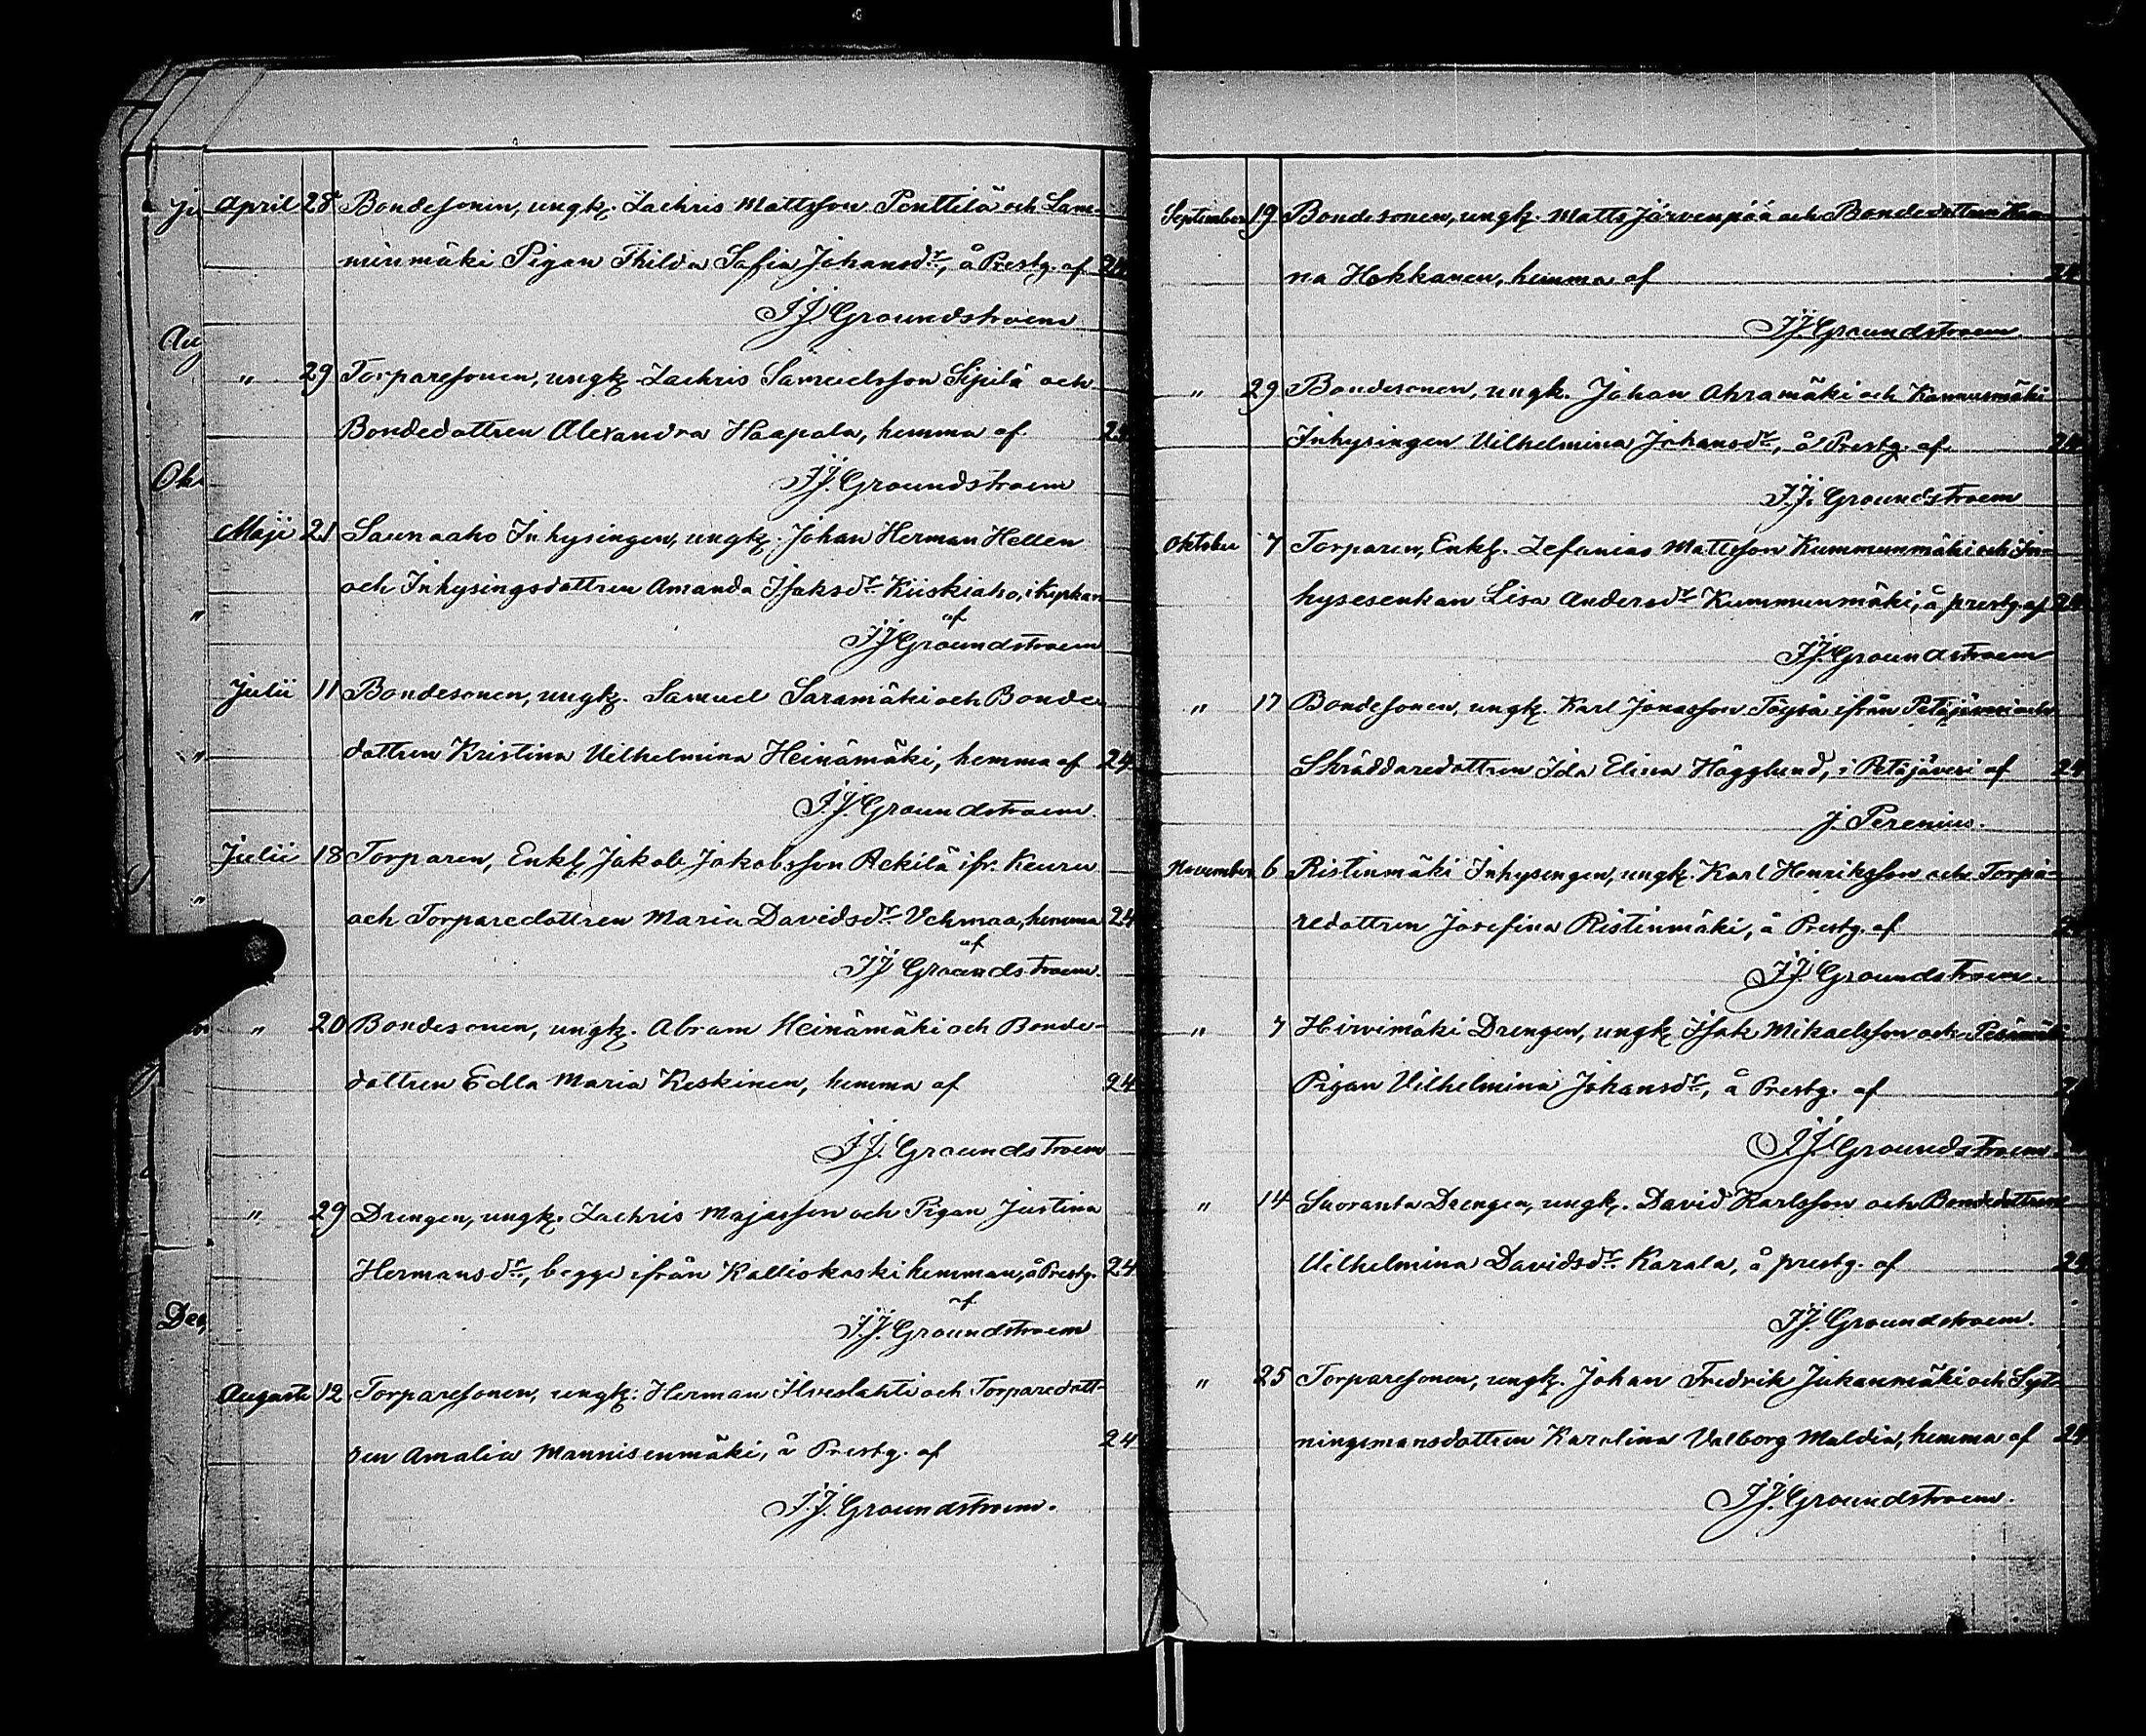 April 28 Bondesonen, ungk. Zachris Mattsson Penttilä och Lam-
minmäki Pigan Thilda Sofia Johansdr, å Prestg. af 24
J.J. Groundstroem
" 29 Torparesonen, ungk. Zachris Samuelsson Sipilä och
Bondedottren Alexandra Haapala, hemma af 24
J.J. Groundstroem
Maji 21 Saunaaho Inhysingen, ungk. Johan Herman Hellen
och Inhysingsdottren Amanda Isaksdr Kiiskiaho, i Kyrkan
af
J.J. Groundstroem
Julii 11 Bondesonen, ungk. Samuel Saramäki och Bonde-
dottren Kristina Vilhelmina Heinämäki, hemma af 24
J.J. Groundstroem.
Julii 18 Torparen, Enkl. Jakob Jakobsson Ackilä ifr. Keuru
och Torparedottren Maria Davidsdr Vehmaa, hemma 24
af
J.J. Groundstroem.
" 20 Bondesonen, ungk. Abram Heinämäki och Bonde-
dottren Edla Maria Keskinen, hemma af 24
J.J. Groundstroem
" 29 Drengen, ungk. Zachris Majasson och Pigan Justina
Hermansdr, begge ifrån Kalliokoski hemman, å Prestg. 24
af
J.J. Groundstroem
Augusti 12 Torparesonen, ungk. Herman Ilveslahti och Torparedott-
ren Amalia Mannisenmäki, å Prestg. af 24
J.J. Groundstroem.
September 19 Bondesonen, ungk. Matts Järvenpää och Bondedottren Han-
na Hokkanen, hemma af 24
J.J. Groundstroem.
" 29 Bondesonen, ungk. Johan Ahramäki och Kannusmäki
Inhysingen Vilhelmina Johansdr, å Prestg. af 24
J.J. Groundstroem
Oktober 7 Torparen, Enkl. Zefanias Mattsson Kummunmäki och In-
hysesenkan Lisa Andersdr Kummunmäki, å prestg. af 24
J.J. Groundstroem
" 17 Bondesonen, ungk. Karl Jonasson Töysä ifrån Petäjävesi och
Skräddaredottren Ida Elina Hägglund, i Petäjävesi af 24
J. Perenius.
November 6 Ristinmäki Inhysingen, ungk. Karl Henriksson och Torpa-
redottren Josefina Ristinmäki, å Prestg. af
J.J. Groundstroem.
" 7 Hirvimäki Drengen, ungk. Isak Mikaelsson och Pesämäki
Pigan Vilhelmina Johansdr, å Prestg. af
J.J. Groundstroem.
" 14 Suoranta Drengen, ungk. David Karlsson och Bondedottren
Vilhelmina Davidsdr Karala, å prestg. af 24
J.J. Groundstroem.
" 25 Torparesonen, ungk. Johan Fredrik Jukanmäki och Syt-
ningsmansdottren Karolina Valborg Maldia, hemma af 24
J.J. Groundstroem.